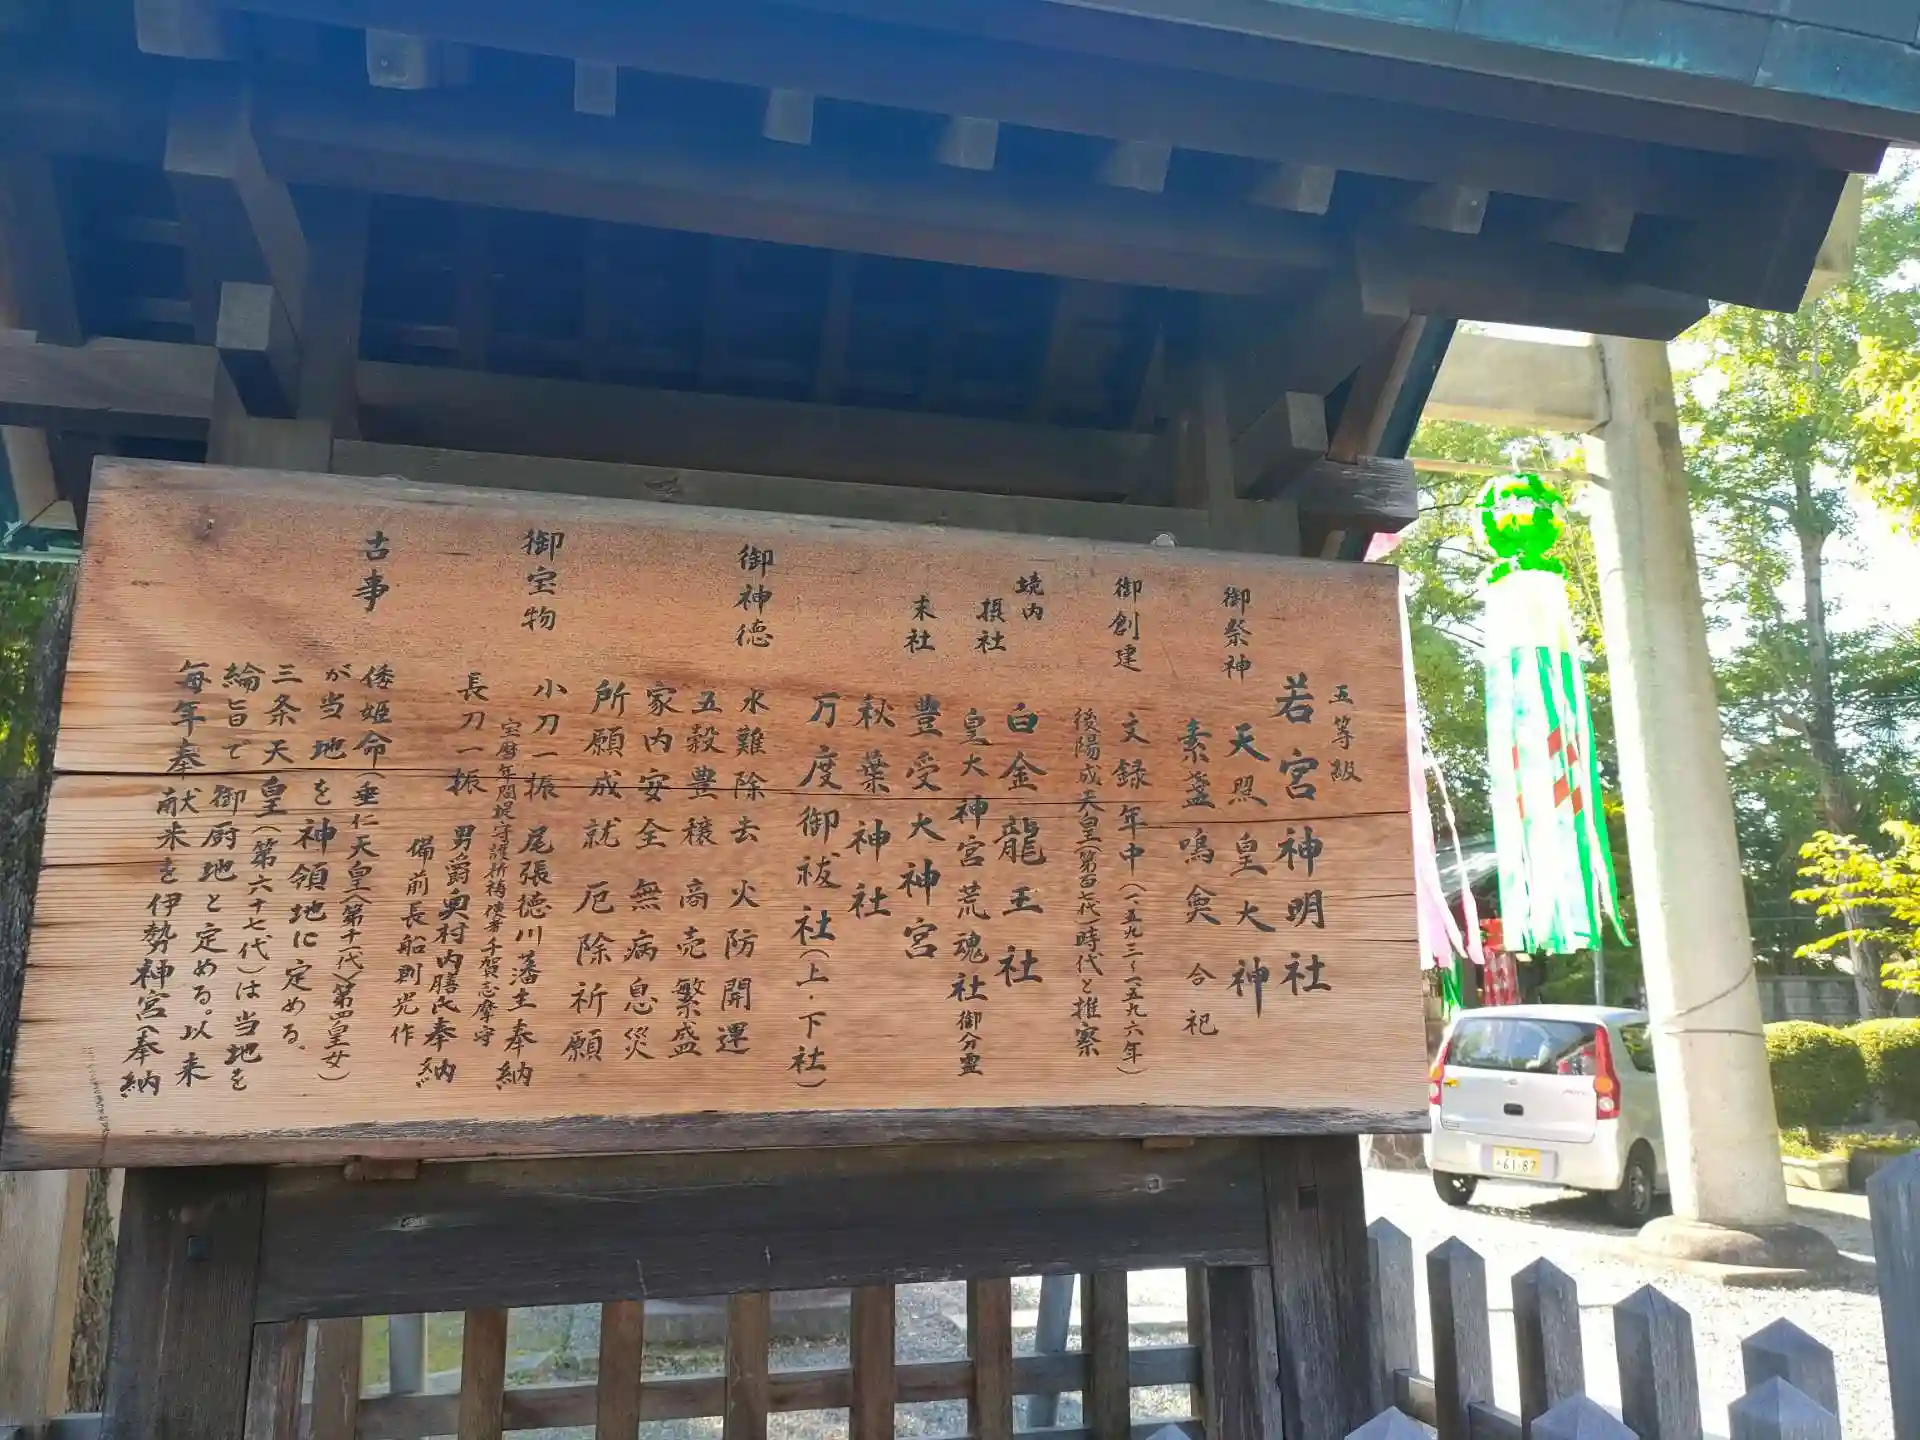 五等級
若宮神明社
御祭神
天照皇大神
素盞鳴奠 合祀
御創建
文録年中(一五九三~一五九六年)
後陽成天皇(第百七代)時代と推察
境内
摂社
白金龍王社
皇大神宮荒魂社御分霊
末社
豊受大神宮
秋葉神社
万度御祓社(上・下社)
御神徳
水難除去 火防開運
五穀豊穣 商売繁盛
家内安全 無病息災
所願成就 厄除祈願
御宝物
小刀一振 尾張徳川藩主奉納
宝暦年間堤守護祈祷使者千賀志摩守
長刀一振 男爵奥村内膳氏奉納
備前長船則光作
古事
倭姫命(垂仁天皇〈第十一代〉第四皇女)
が当地を神領地に定める。
三条天皇(第六十七代)は当地を
綸旨で御厨地と定める。以来
毎年奉献米を伊勢神宮へ奉納
6187